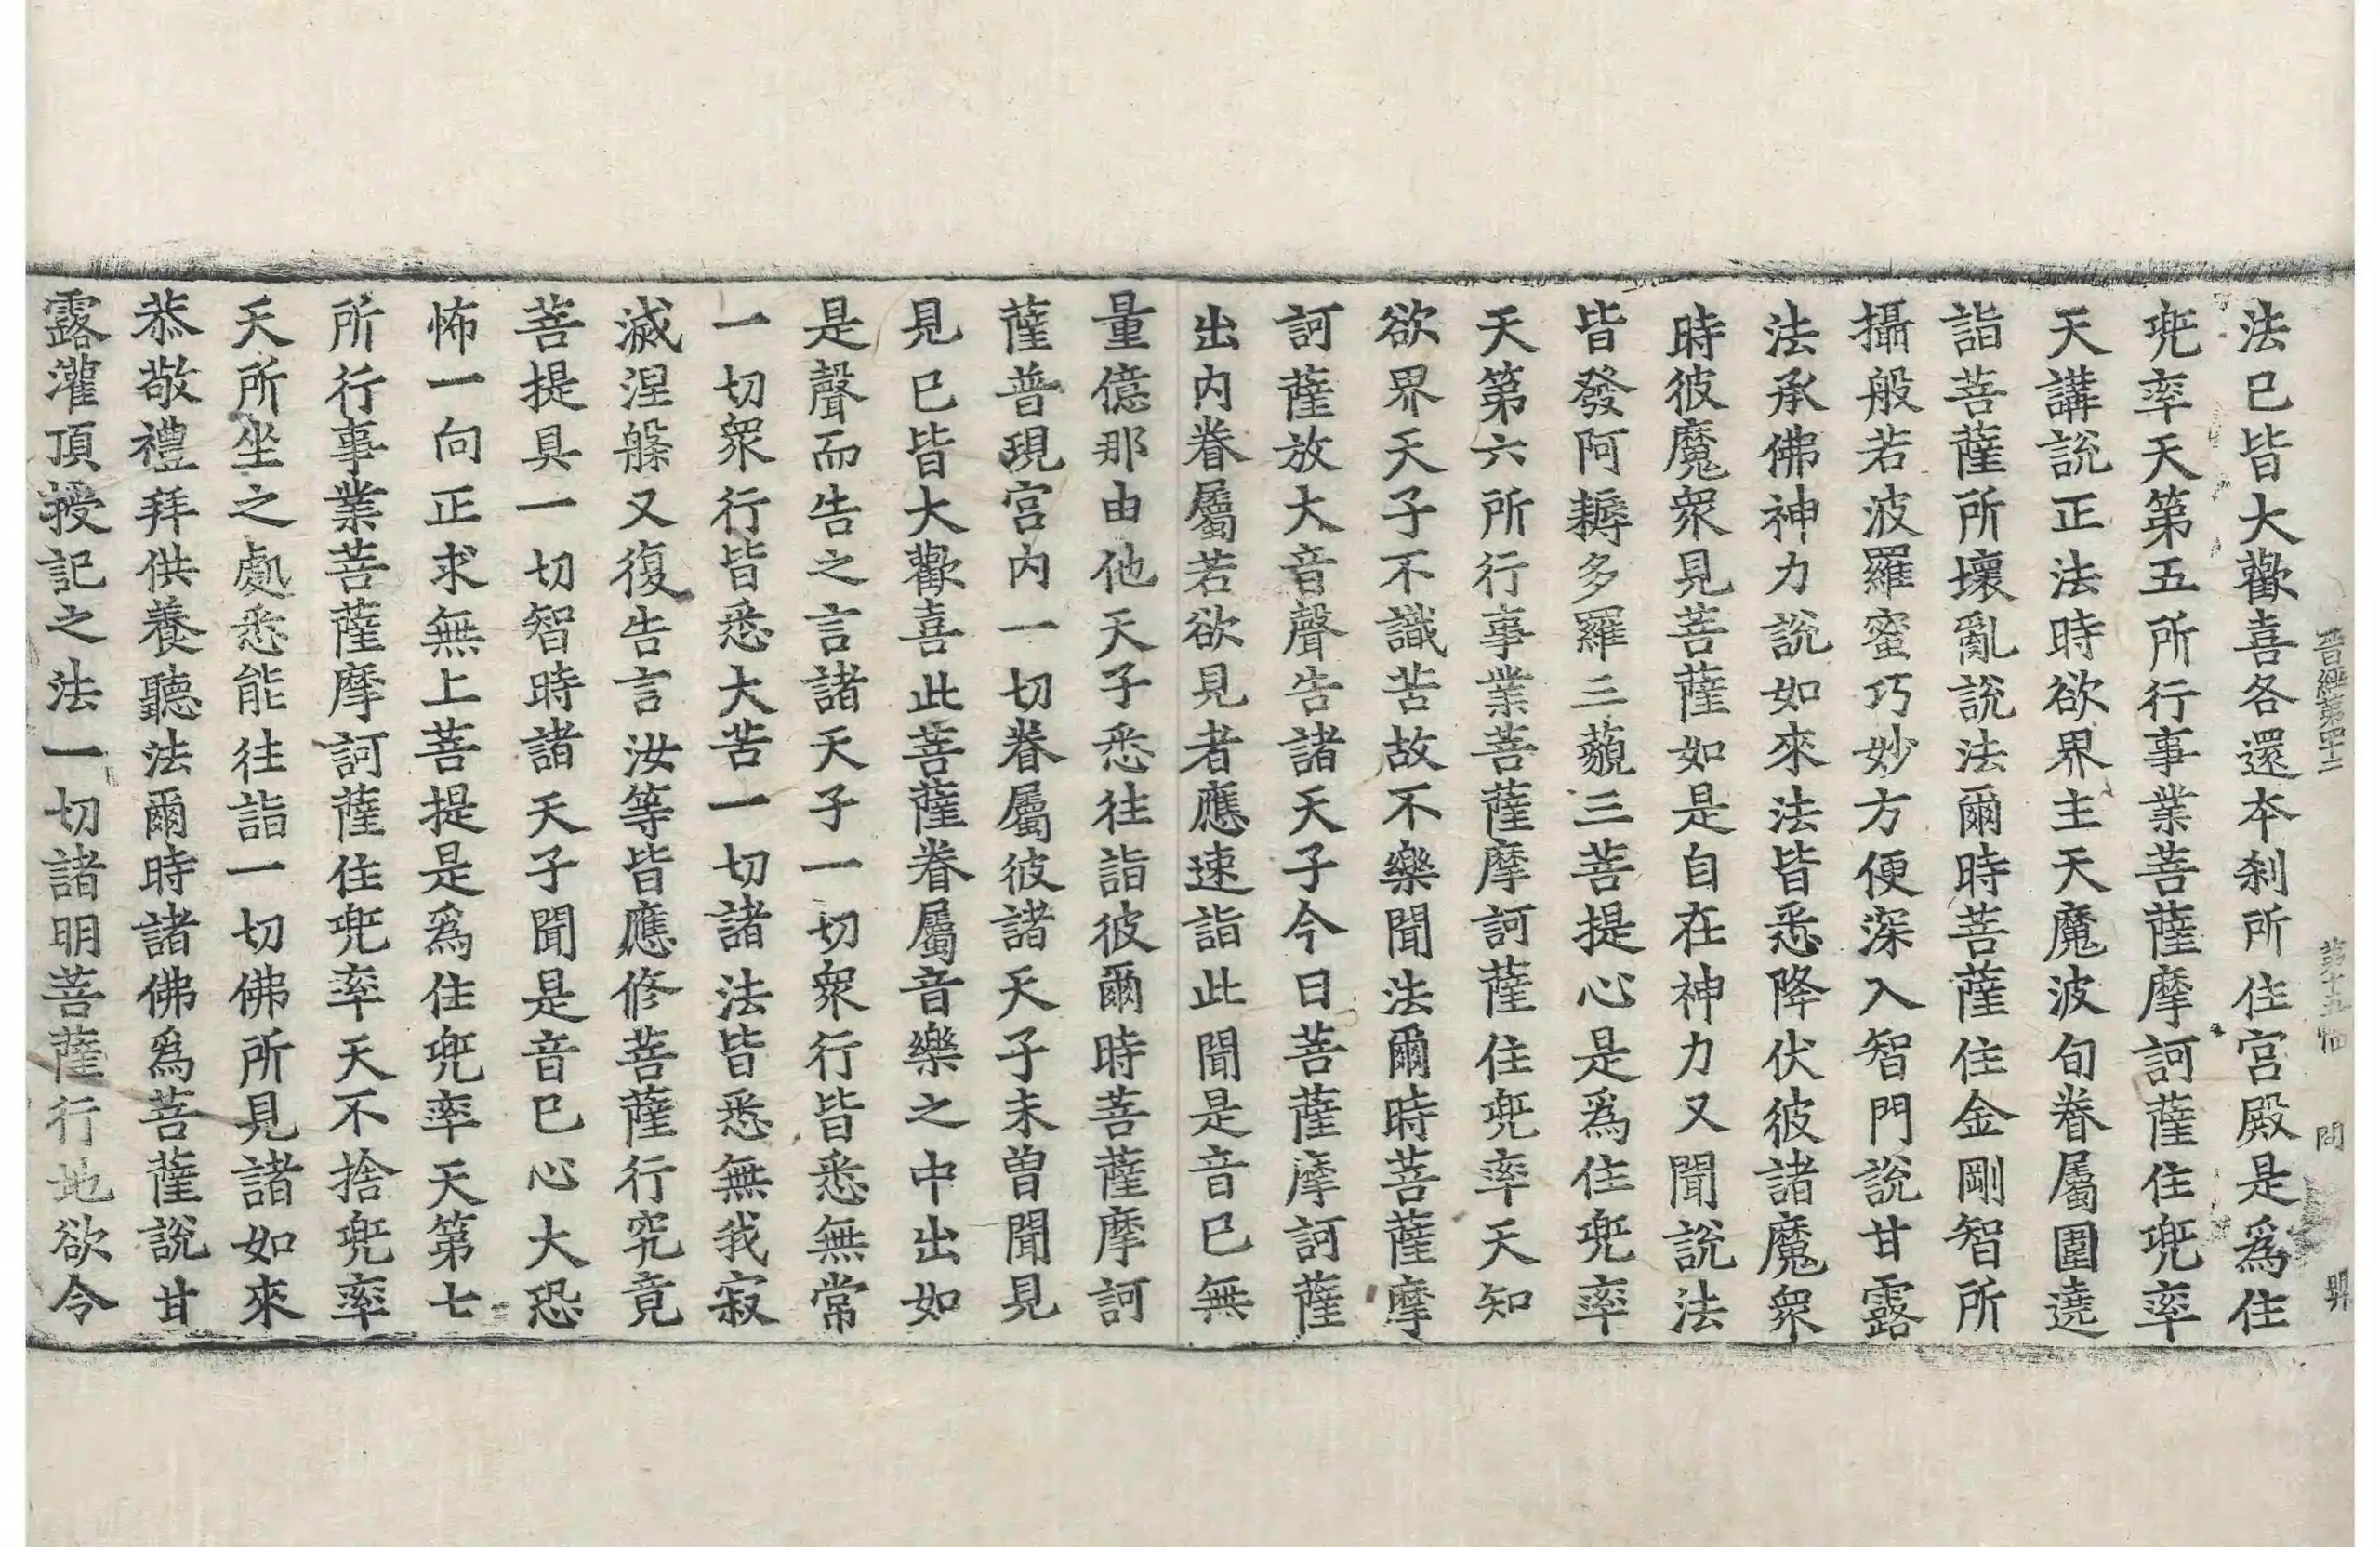 晉經第四十二 第十五 問
法巳皆大歡喜各還本刹所住宮殿是爲住
兜率天第五所行事業菩薩摩訶薩住兜率
天講說正法時欲界主天魔波旬眷屬圍遶
詣菩薩所壞亂說法爾時菩薩住金剛智所
攝般若波羅蜜巧妙方便深入智門說甘露
法承佛神力說如來法皆悉降伏彼諸魔衆
時彼魔衆見菩薩如是自在神力又聞說法
皆發阿耨多羅三藐三菩提心是爲住兜率
天第六所行事業菩薩摩訶薩住兜率天知
欲界天子不識苦故不樂聞法爾時菩薩摩
訶薩放大音聲告諸天子今日菩薩摩訶薩
出內眷屬若欲見者應速詣此聞是音巳無
量億那由他天子悉往詣彼爾時菩薩摩訶
薩普現宮內一切眷屬彼諸天子未曾聞見
見巳皆大歡喜此菩薩眷屬音樂之中出如
是聲而告之言諸天子一切衆行皆悉無常
一切衆行皆悉大苦一切諸法皆悉無我寂
滅涅槃又復告言汝等皆應修菩薩行究竟
菩提具一切智時諸天子聞是音巳心大恐
怖一向正求無上菩提是爲住兜率天第七
所行事業菩薩摩訶薩住兜率天不捨兜率
天所坐之處悉能往詣一切佛所見諸如來
恭敬禮拜供養聽法爾時諸佛爲菩薩說甘
露灌頂授記之法一切諸明菩薩行地欲令